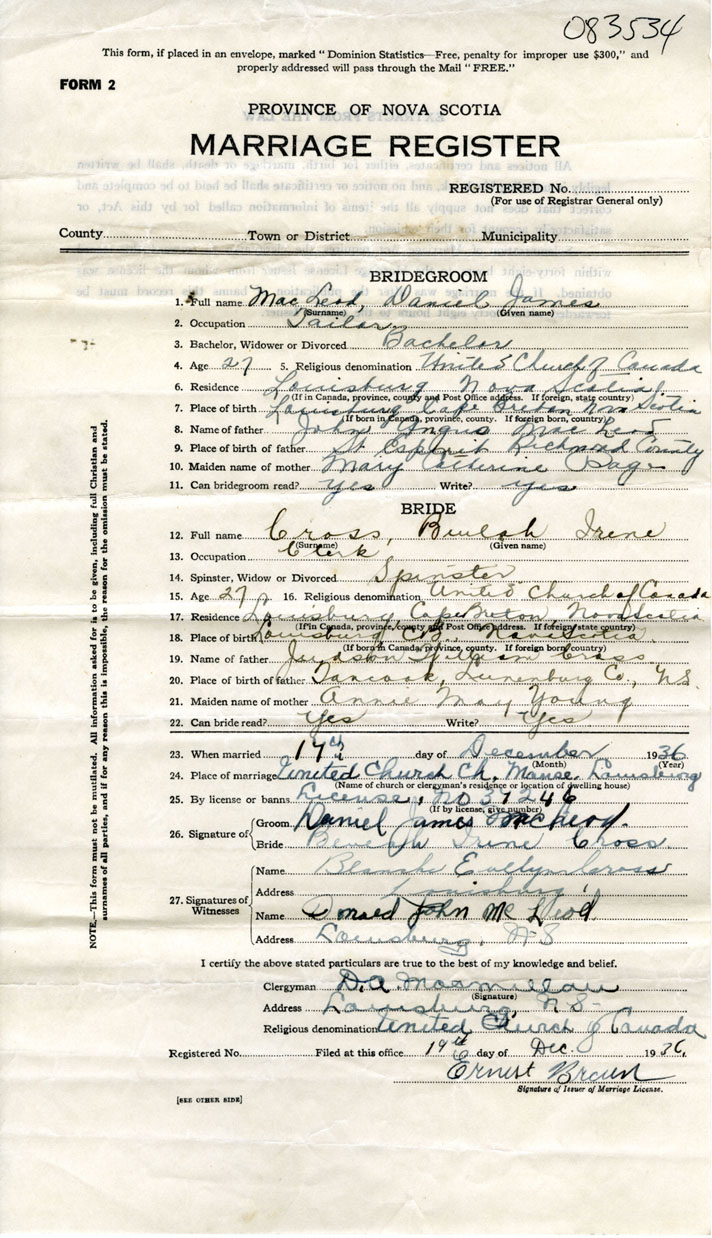 083534
This form, if placed in an envelope, marked "Dominion Statistics—Free, penalty for improper use $300," and
properly addressed will pass through the Mail "FREE."
FORM 2
PROVINCE OF NOVA SCOTIA
MARRIAGE REGISTER
REGISTERED No.
(For use of Registrar General only)
County Town or District Municipality
BRIDEGROOM
1. Full name MacLeod, Daniel James
(Surname) (Given name)
2. Occupation Tailor
3. Bachelor, Widower or Divorced Bachelor
4. Age 27 5. Religious denomination United Church of Canada
6. Residence Louisburg Nova Scotia
(If in Canada, province, county and Post Office address. If foreign, state country)
7. Place of birth Louisburg Cape Breton Nova Scotia
(If born in Canada, province, county. If foreign born, country)
8. Name of father John Angus MacLeod
9. Place of birth of father St Esprit Richmond County
10. Maiden name of mother Mary Catherine Page
11. Can bridegroom read? yes Write? yes
BRIDE
12. Full name Cross, Beulah Irene
(Surname) (Given name)
13. Occupation Clerk
14. Spinster, Widow or Divorced Spinster
15. Age 27 16. Religious denomination United Church of Canada
17. Residence Louisburg, Cape Breton, Nova Scotia
(If in Canada, province, county and Post Office address. If foreign state country)
18. Place of birth Louisburg C.B. Nova Scotia
(If born in Canada, province, county. If foreign born country)
19. Name of father Judson William Cross
20. Place of birth of father Tancook, Lunenburg Co., N.S.
21. Maiden name of mother Annie May Young
22. Can bride read? Yes Write? Yes
23. When married 17th day of December 1936
(Month) (Year)
24. Place of marriage United Church Ch. Manse. Louisburg
(Name of church or clergyman's residence or location of dwelling house)
25. By license or banns License, No 51246
(If by license, give number)
26. Signature of Groom Daniel James McLeod.
Bride Beulah Irene Cross
27. Signatures of Witnesses
Name Blanche Evelyn Cross
Address Louisburg
Name Donald John McLeod
Address Louisburg, N S
I certify the above stated particulars are true to the best of my knowledge and belief.
Clergyman D.A. Macmillan
(Signature)
Address Louisburg, N.S-
Religious denomination United Church of Canada
Registered No. Filed at this office 19th day of Dec. 1936,
Ernest Brown
Signature of Issuer of Marriage License.
[SEE OTHER SIDE]
NOTE.—This form must not be mutilated. All information asked for is to be given, including full Christian and
surnames of all parties, and if for any reason this is impossible, the reason for the omission must be stated.